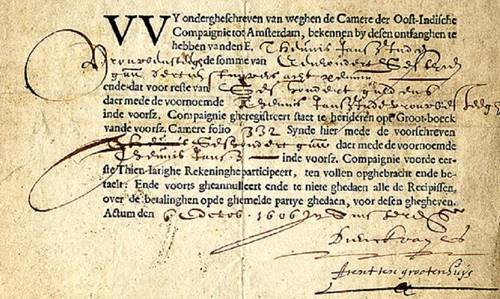 VVY ondergheschreven van weghen de Camere der Oost-Indische
Compagnie tot Amsterdam, bekennen by desen ontfanghen te
hebben vanden E. Theunis Jansz
de somme van
ende dat voor reste van Ses hondert guldens
daer mede de voornoemde Theunis Jansz
inde voorsz. Compagnie gheregistreert staet te herideren op't Groot-boeck
vande voorsz. Camere folio 332 Synde hier mede de voorschreven
daer mede de voornoemde
Theunis Jansz inde voorsz. Compagnie voorde eer-
ste Thien-Iarighe Rekeninghe participeert, ten vollen opghebracht ende be-
taelt: Ende voorts gheannulleert ende te niete ghedaen alle de Recipissen,
over de betalinghen opde ghemelde partye ghedaen, voor desen ghegheven.
Actum den Octob. 1606
Arent ten grootenhuys